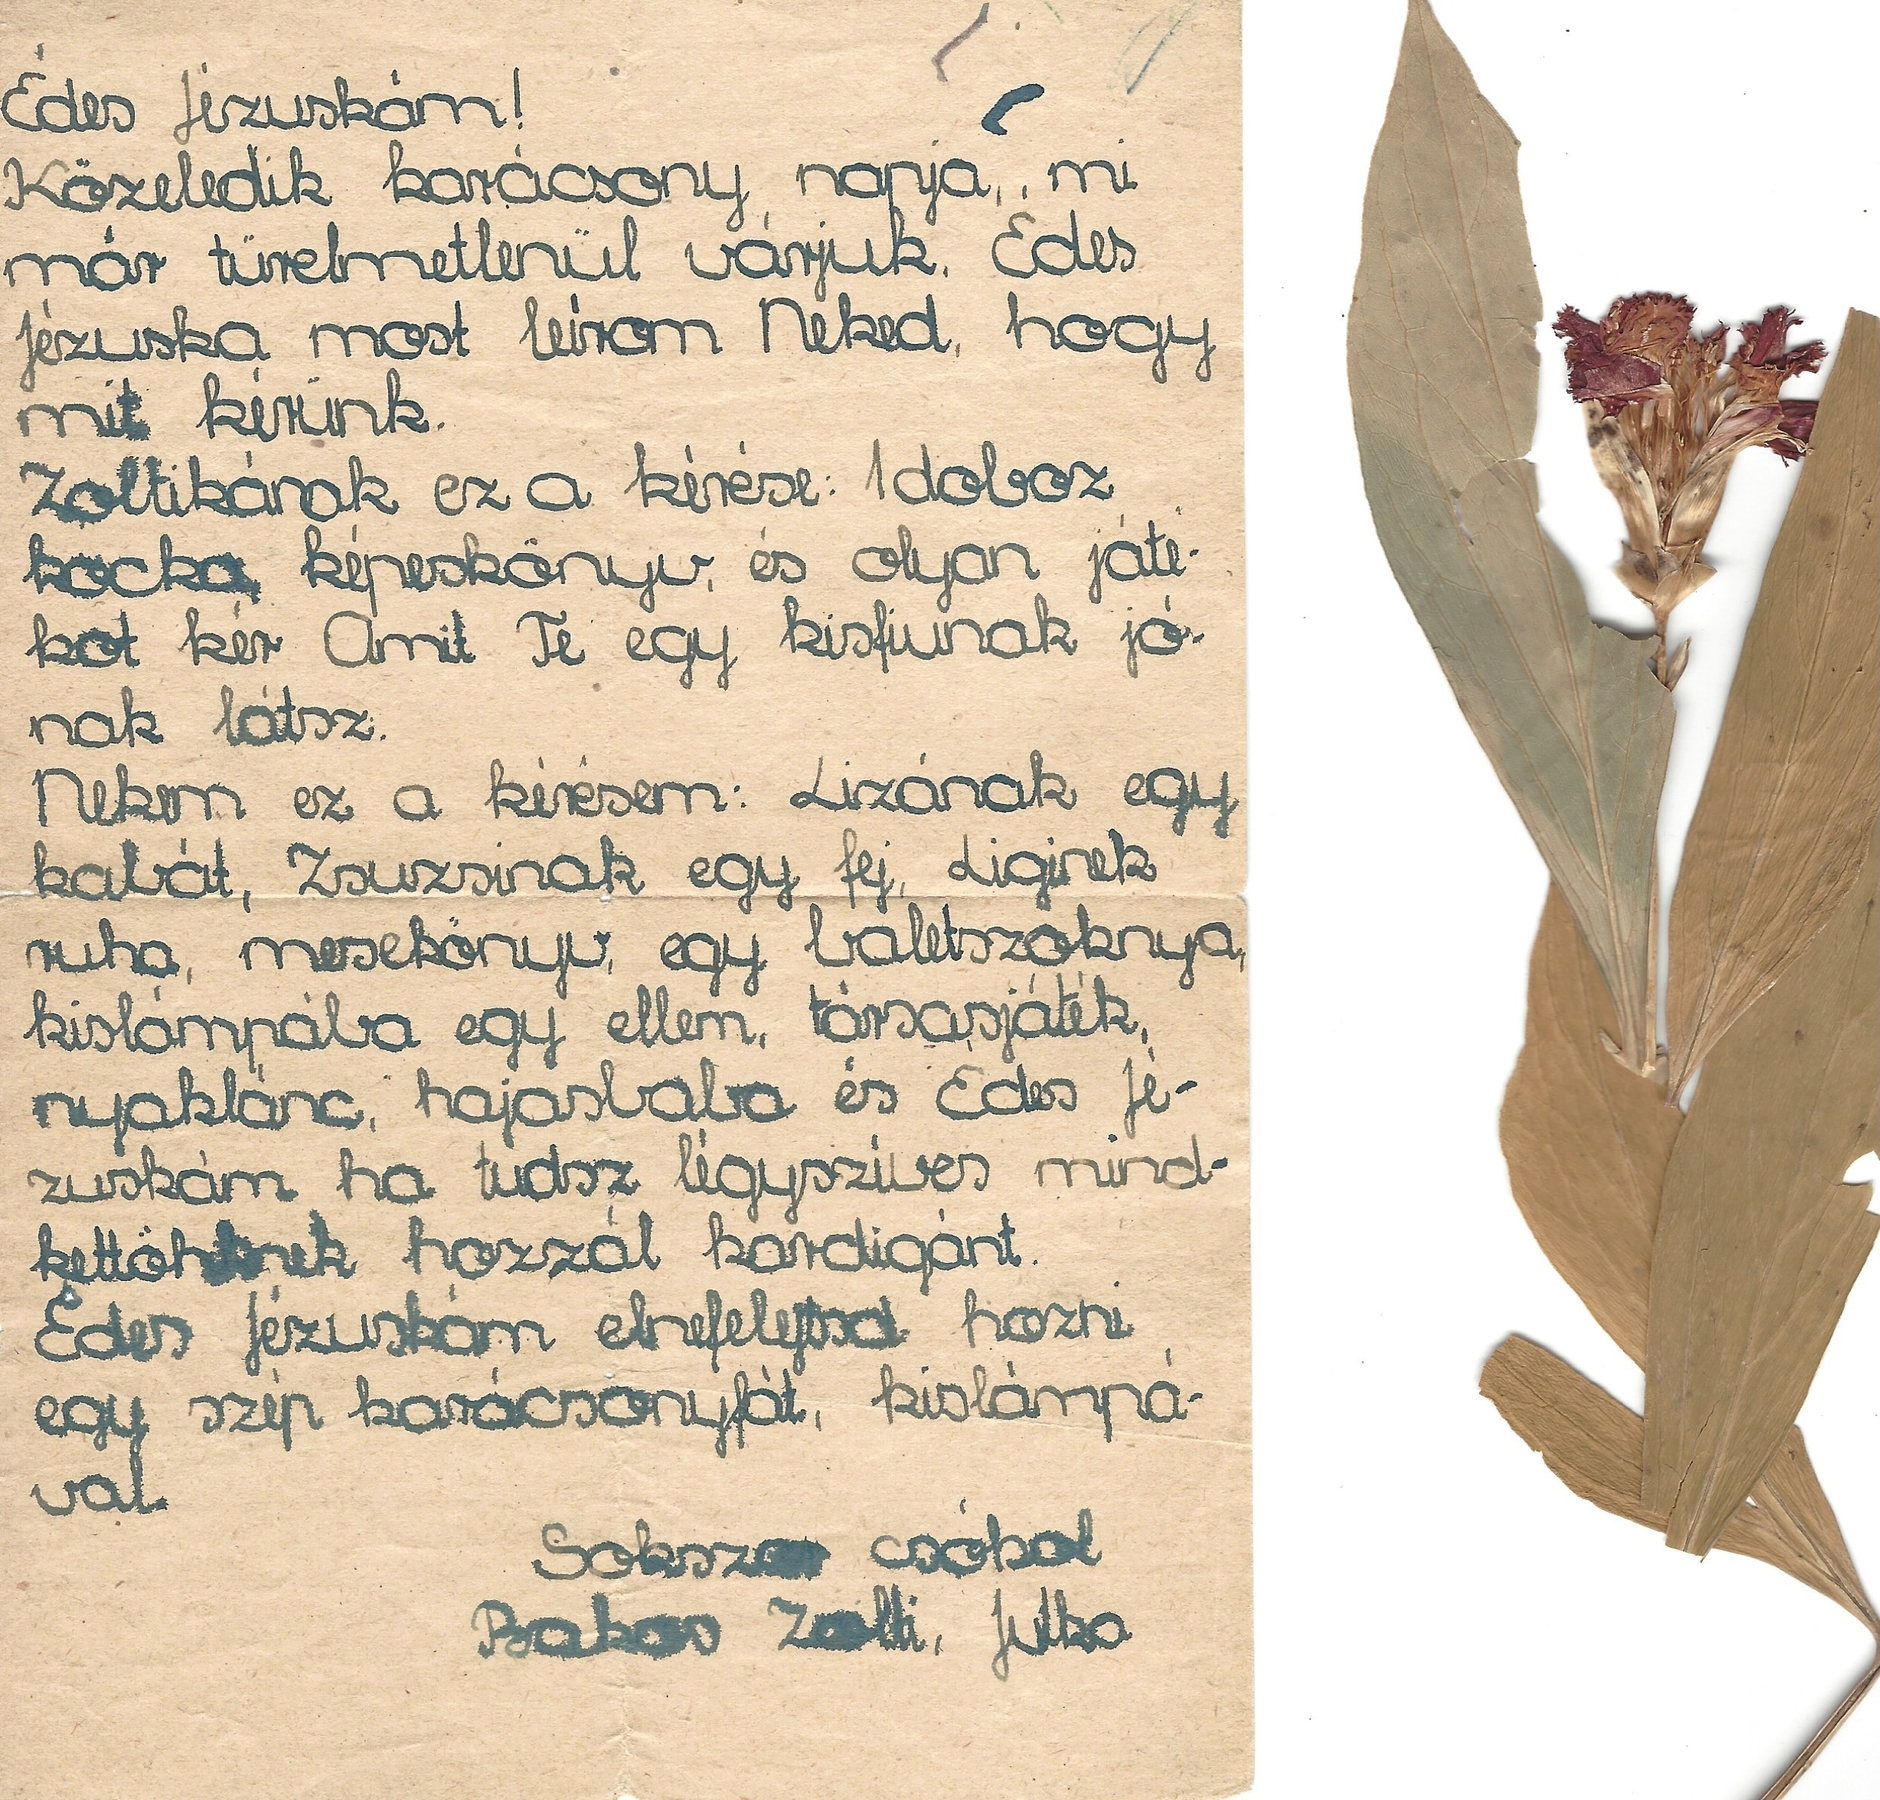 Édes Jézuskám!
Közeledik karácsony napja, mi
már türelmetlenül várjuk. Édes
Jézuska most leírom Neked, hogy
mit kérünk.
Zoltikának ez a kérése: 1 doboz
kocka, képeskönyv, és olyan játé-
kot kér Amit Te egy kisfiunak jó-
nak látsz.
Nekem ez a kérésem: Lizának egy
kabát, Zsuzsinak egy fej, Liginek
ruha, mesekönyv, egy baletszoknya,
kislámpába egy ellem, társasjáték,
nyaklánc, hajasbaba és Édes Jé-
zuskám ha tudsz légyszíves mind-
kettöhknek hozzál kardigánt.
Édes Jézuskám elnefelejtsd hozni
egy szép karácsonyfát, kislámpá-
val.
Sokszor csókol
Bakos Zolti, Jutka